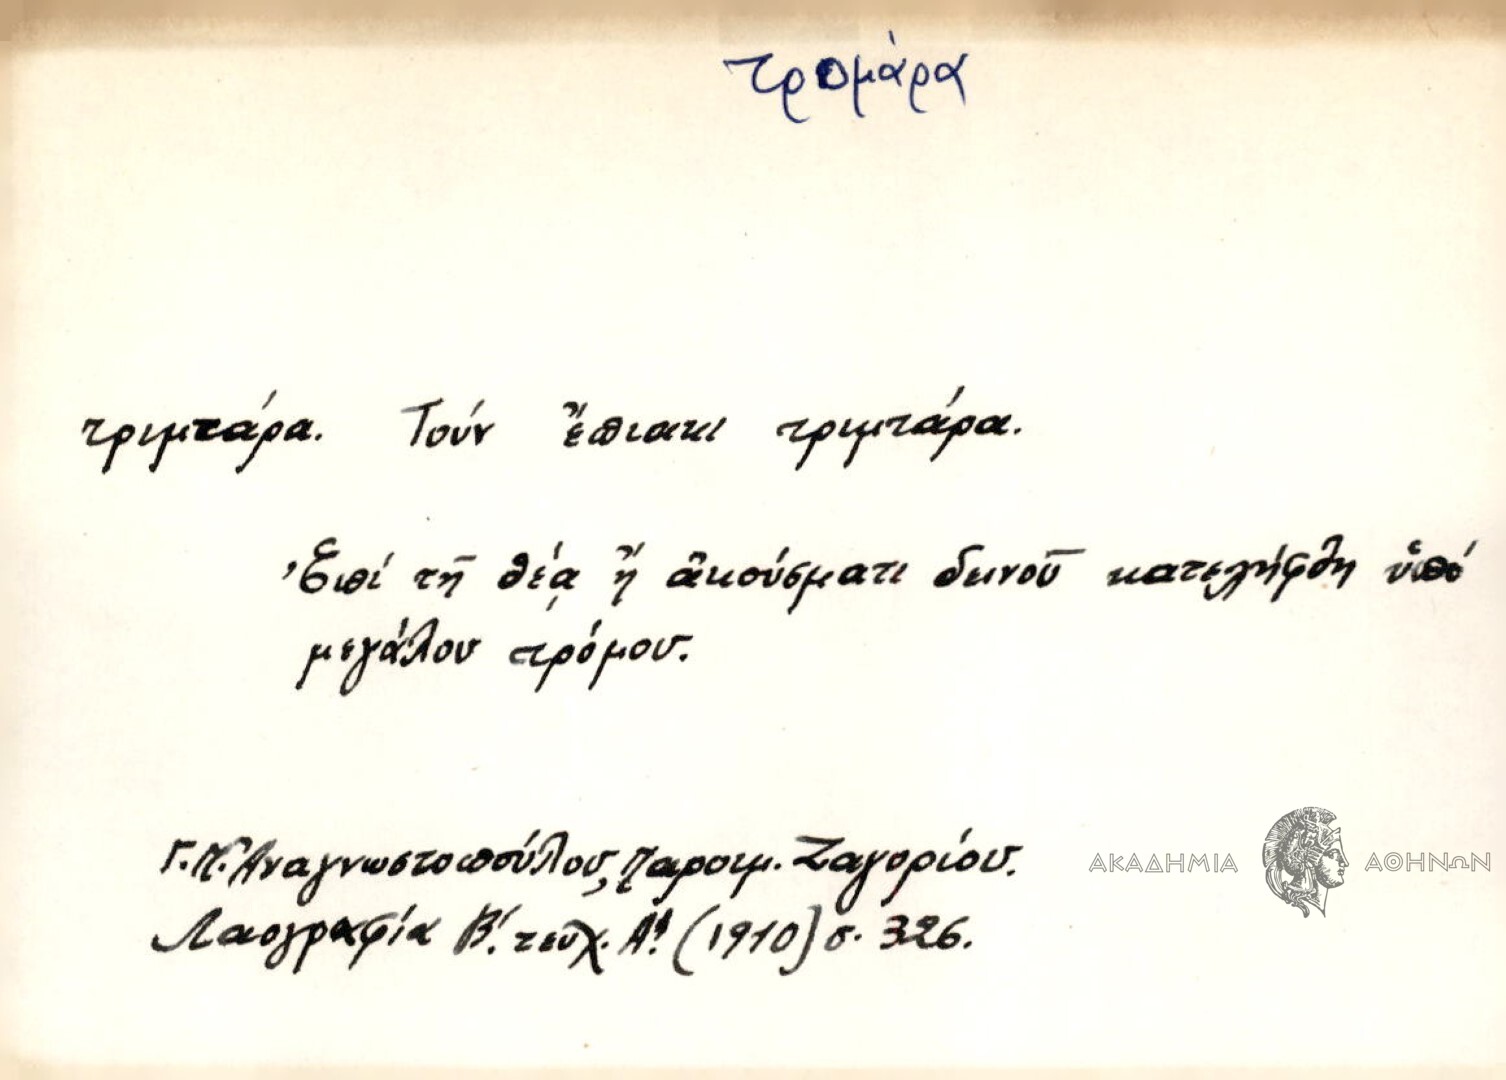 τρομάρα
τριμτάρα. Τούν ἔπιακι τριμτάρα.
Ἐπί τῇ θέᾳ ἤ ἀκούσματι δεινοῦ κατελήφθη ὑπό
μεγάλου τρόμου.
Γ.Π. Ἀναγνωστοπούλου, Παροιμ. Ζαγορίου.
Λαογραφία Β΄. τευχ. Α΄. (1910) σ. 326.
ΑΚΑΔΗΜΙΑ ΑΘΗΝΩΝ